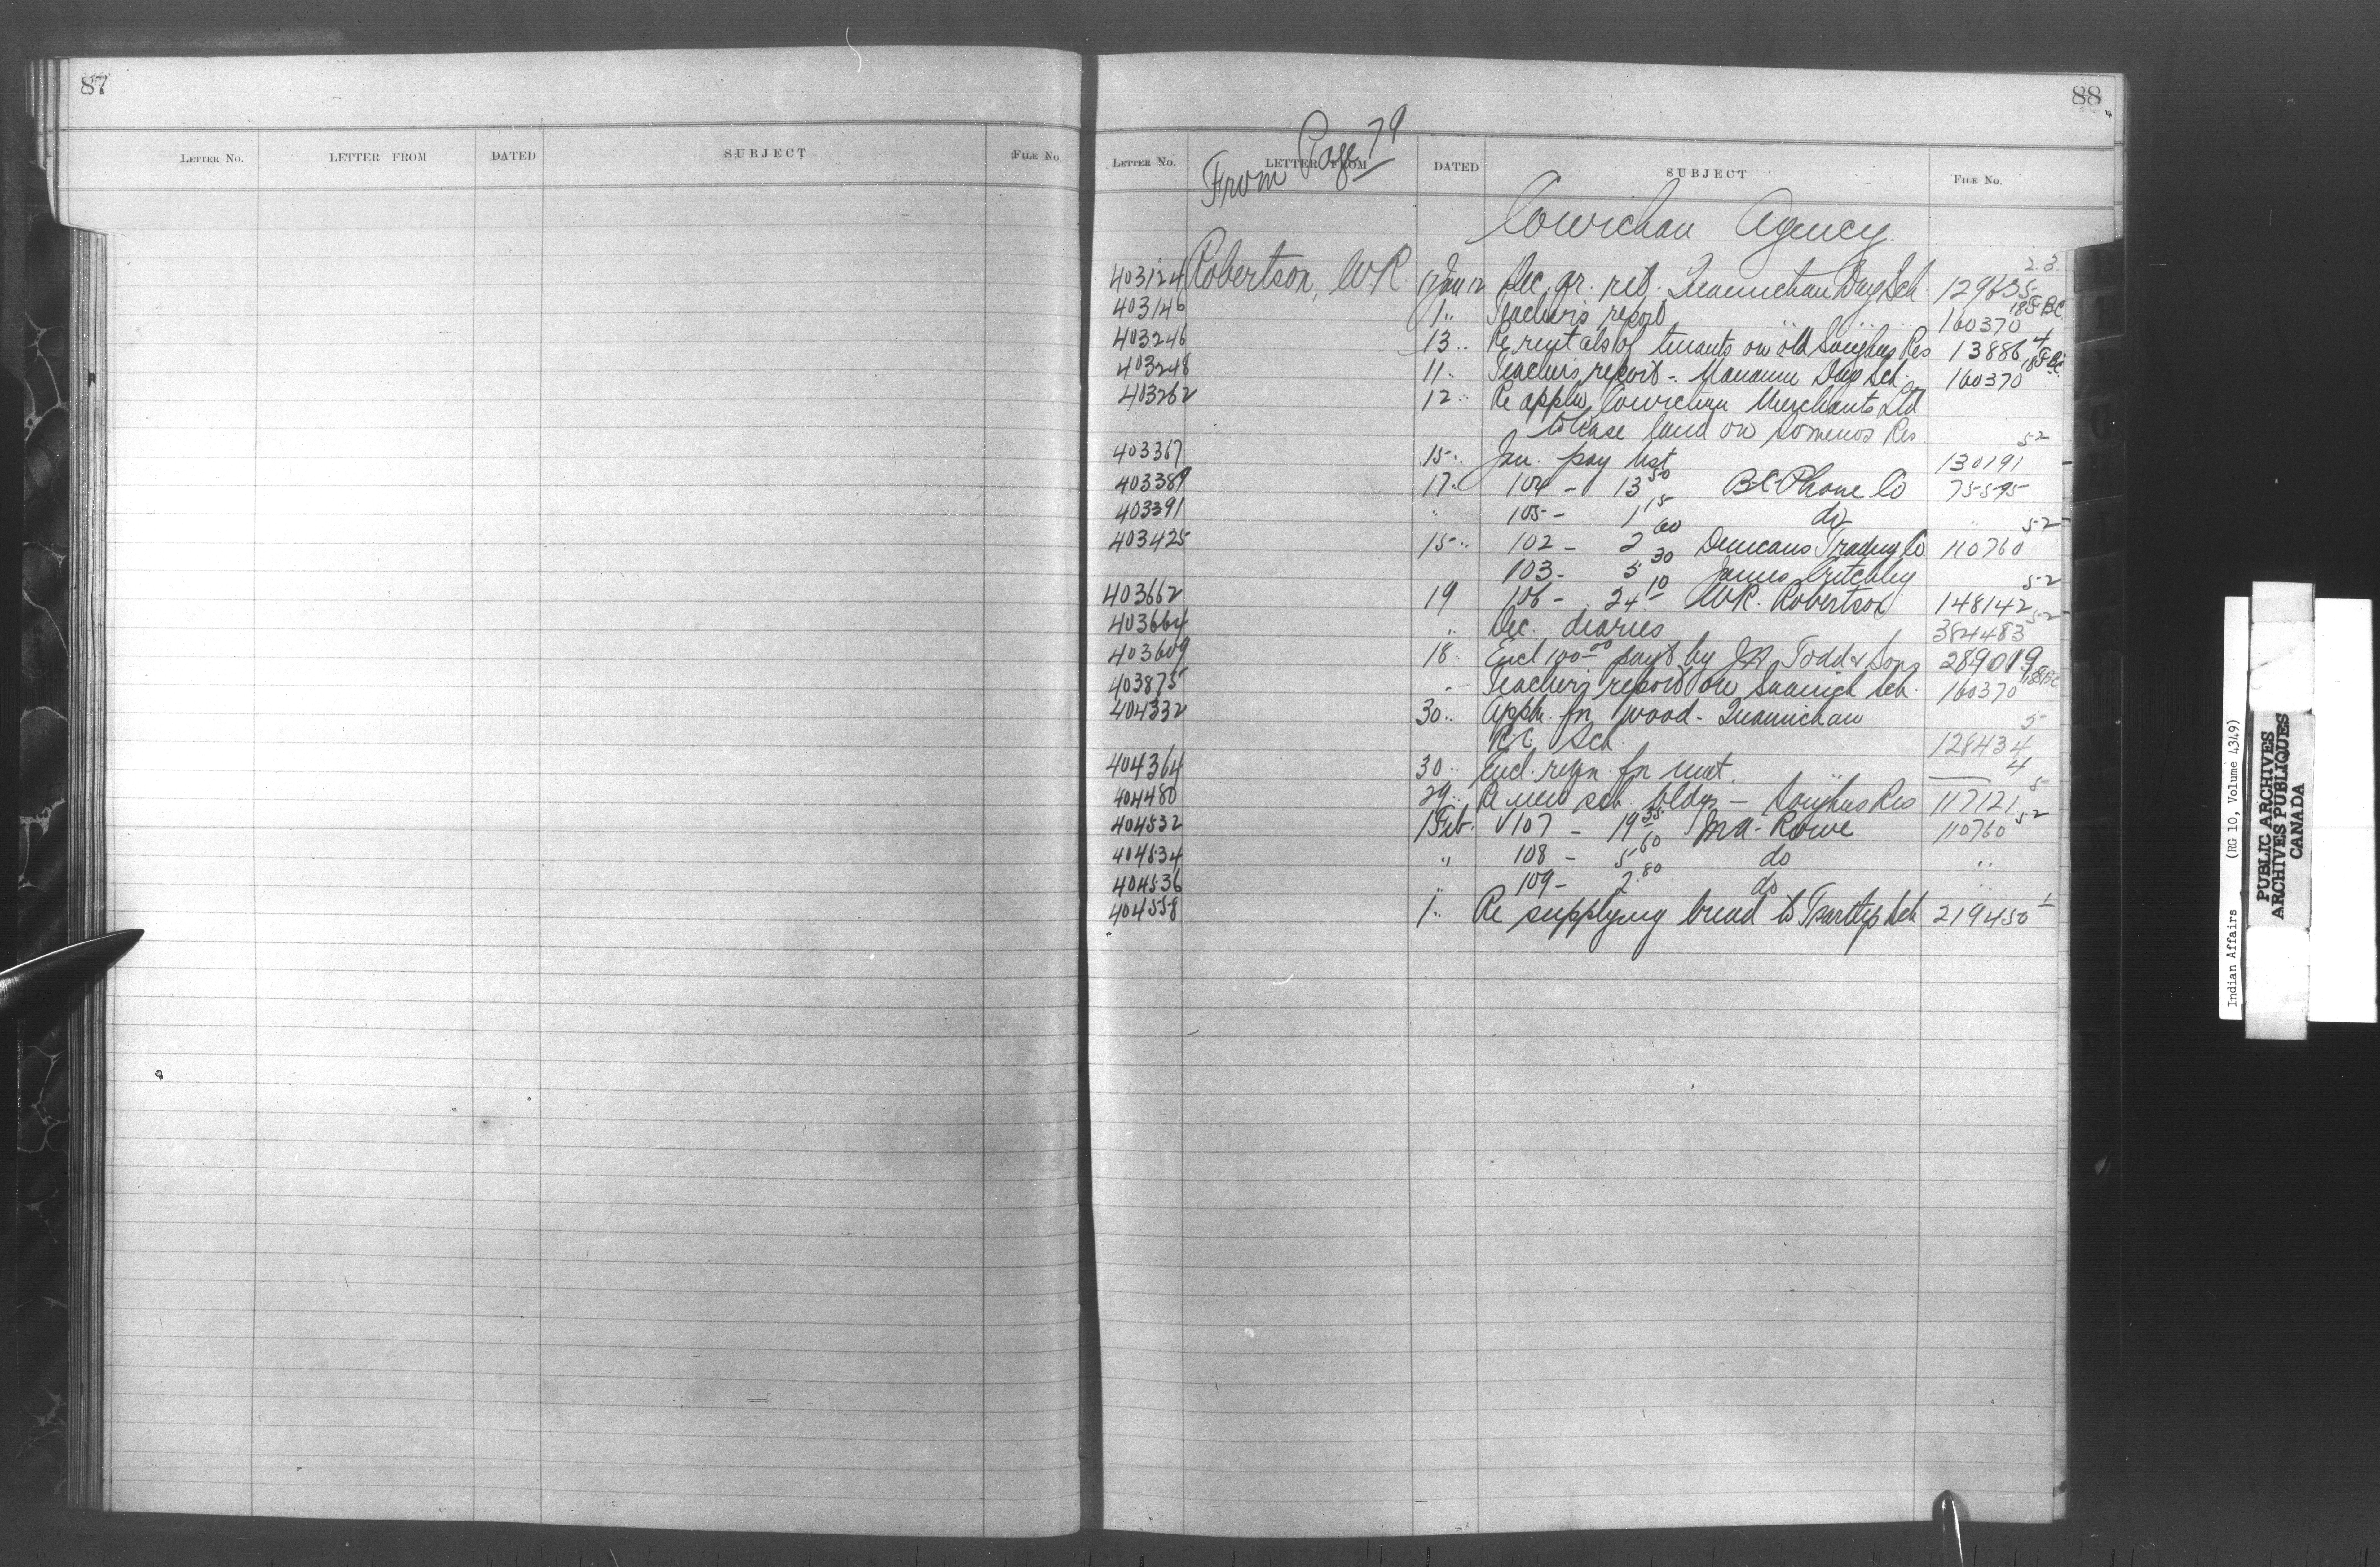 87
LETTER No. LETTER FROM DATED SUBJECT FILE No.
88
From Page 79
LETTER No. LETTER FROM DATED SUBJECT FILE No.
Cowichan Agency.
403124 Robertson, W.R. Jan 12 Dec. qr. ret. Quamichan Day Sch 129635 2.3.
403146 1 " Teacher's report " " 160370 18 BC
403246 13 " Re rentals of tenants on old Songhees Res 13886 4
403248 11 " Teacher's report - Nanaimo Day Sch. 160370 18 BC
403262 12 " Re appln Cowichan Merchants Ltd
to lease land on Somenos Res
403367 15 " Jan. pay list 130191 52
403389 17 " 104 - 13 50 B.C. Phone Co 75595
403391 " 105 - 1 15 do " 52
403425 15 " 102 - 2 60 Duncans Trading Co 110760
103 - 5 30 James Critchley
403662 19 106 - 24 10 W.R. Robertson 148142 52
403664 " Dec. diaries 384483 52
403609 18 " Encl 100 00 paid by J.H. Todd & Sons 289019
403875 " Teacher's report on Saanich Sch. 160370 18 BC
404332 30 " Appln. for wood - Quamichan
R.C. Sch. 128434 5
404364 30 " Encl. reqn. for mat. 4
404480 29 " Re new sch. bldgs - Songhees Res 117121 5
404532 1 Feb. 107 - 19 35 M.A. Rowe 110760 52
404534 " 108 - 5 60 do "
404536 " 109 - 2.80 do "
404558 1 " Re supplying bread to Tsartlip Sch 219450 1
Indian Affairs (RG 10, Volume 4349)
PUBLIC ARCHIVES
ARCHIVES PUBLIQUES
CANADA